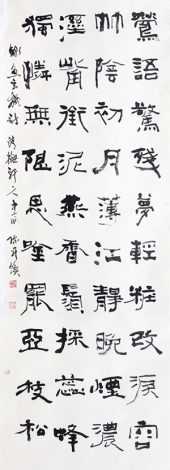 鶯語驚殘夢輕粧改淚容
竹陰初月薄江靜晚煙濃
溼觜銜泥燕香鬚採蕊蜂
獨憐無限思唫罷亞枝松
魚玄機詩